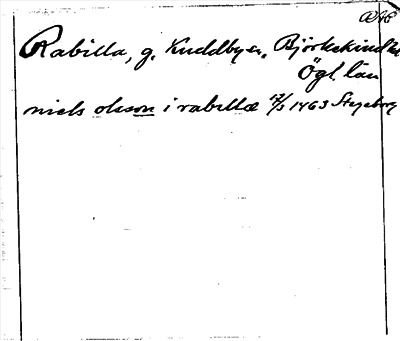 Rabilla, g. Kuddby sn. Björkekind
Ögl. län
niels olsson i rabillæ 17/3 1463 Stegeborg